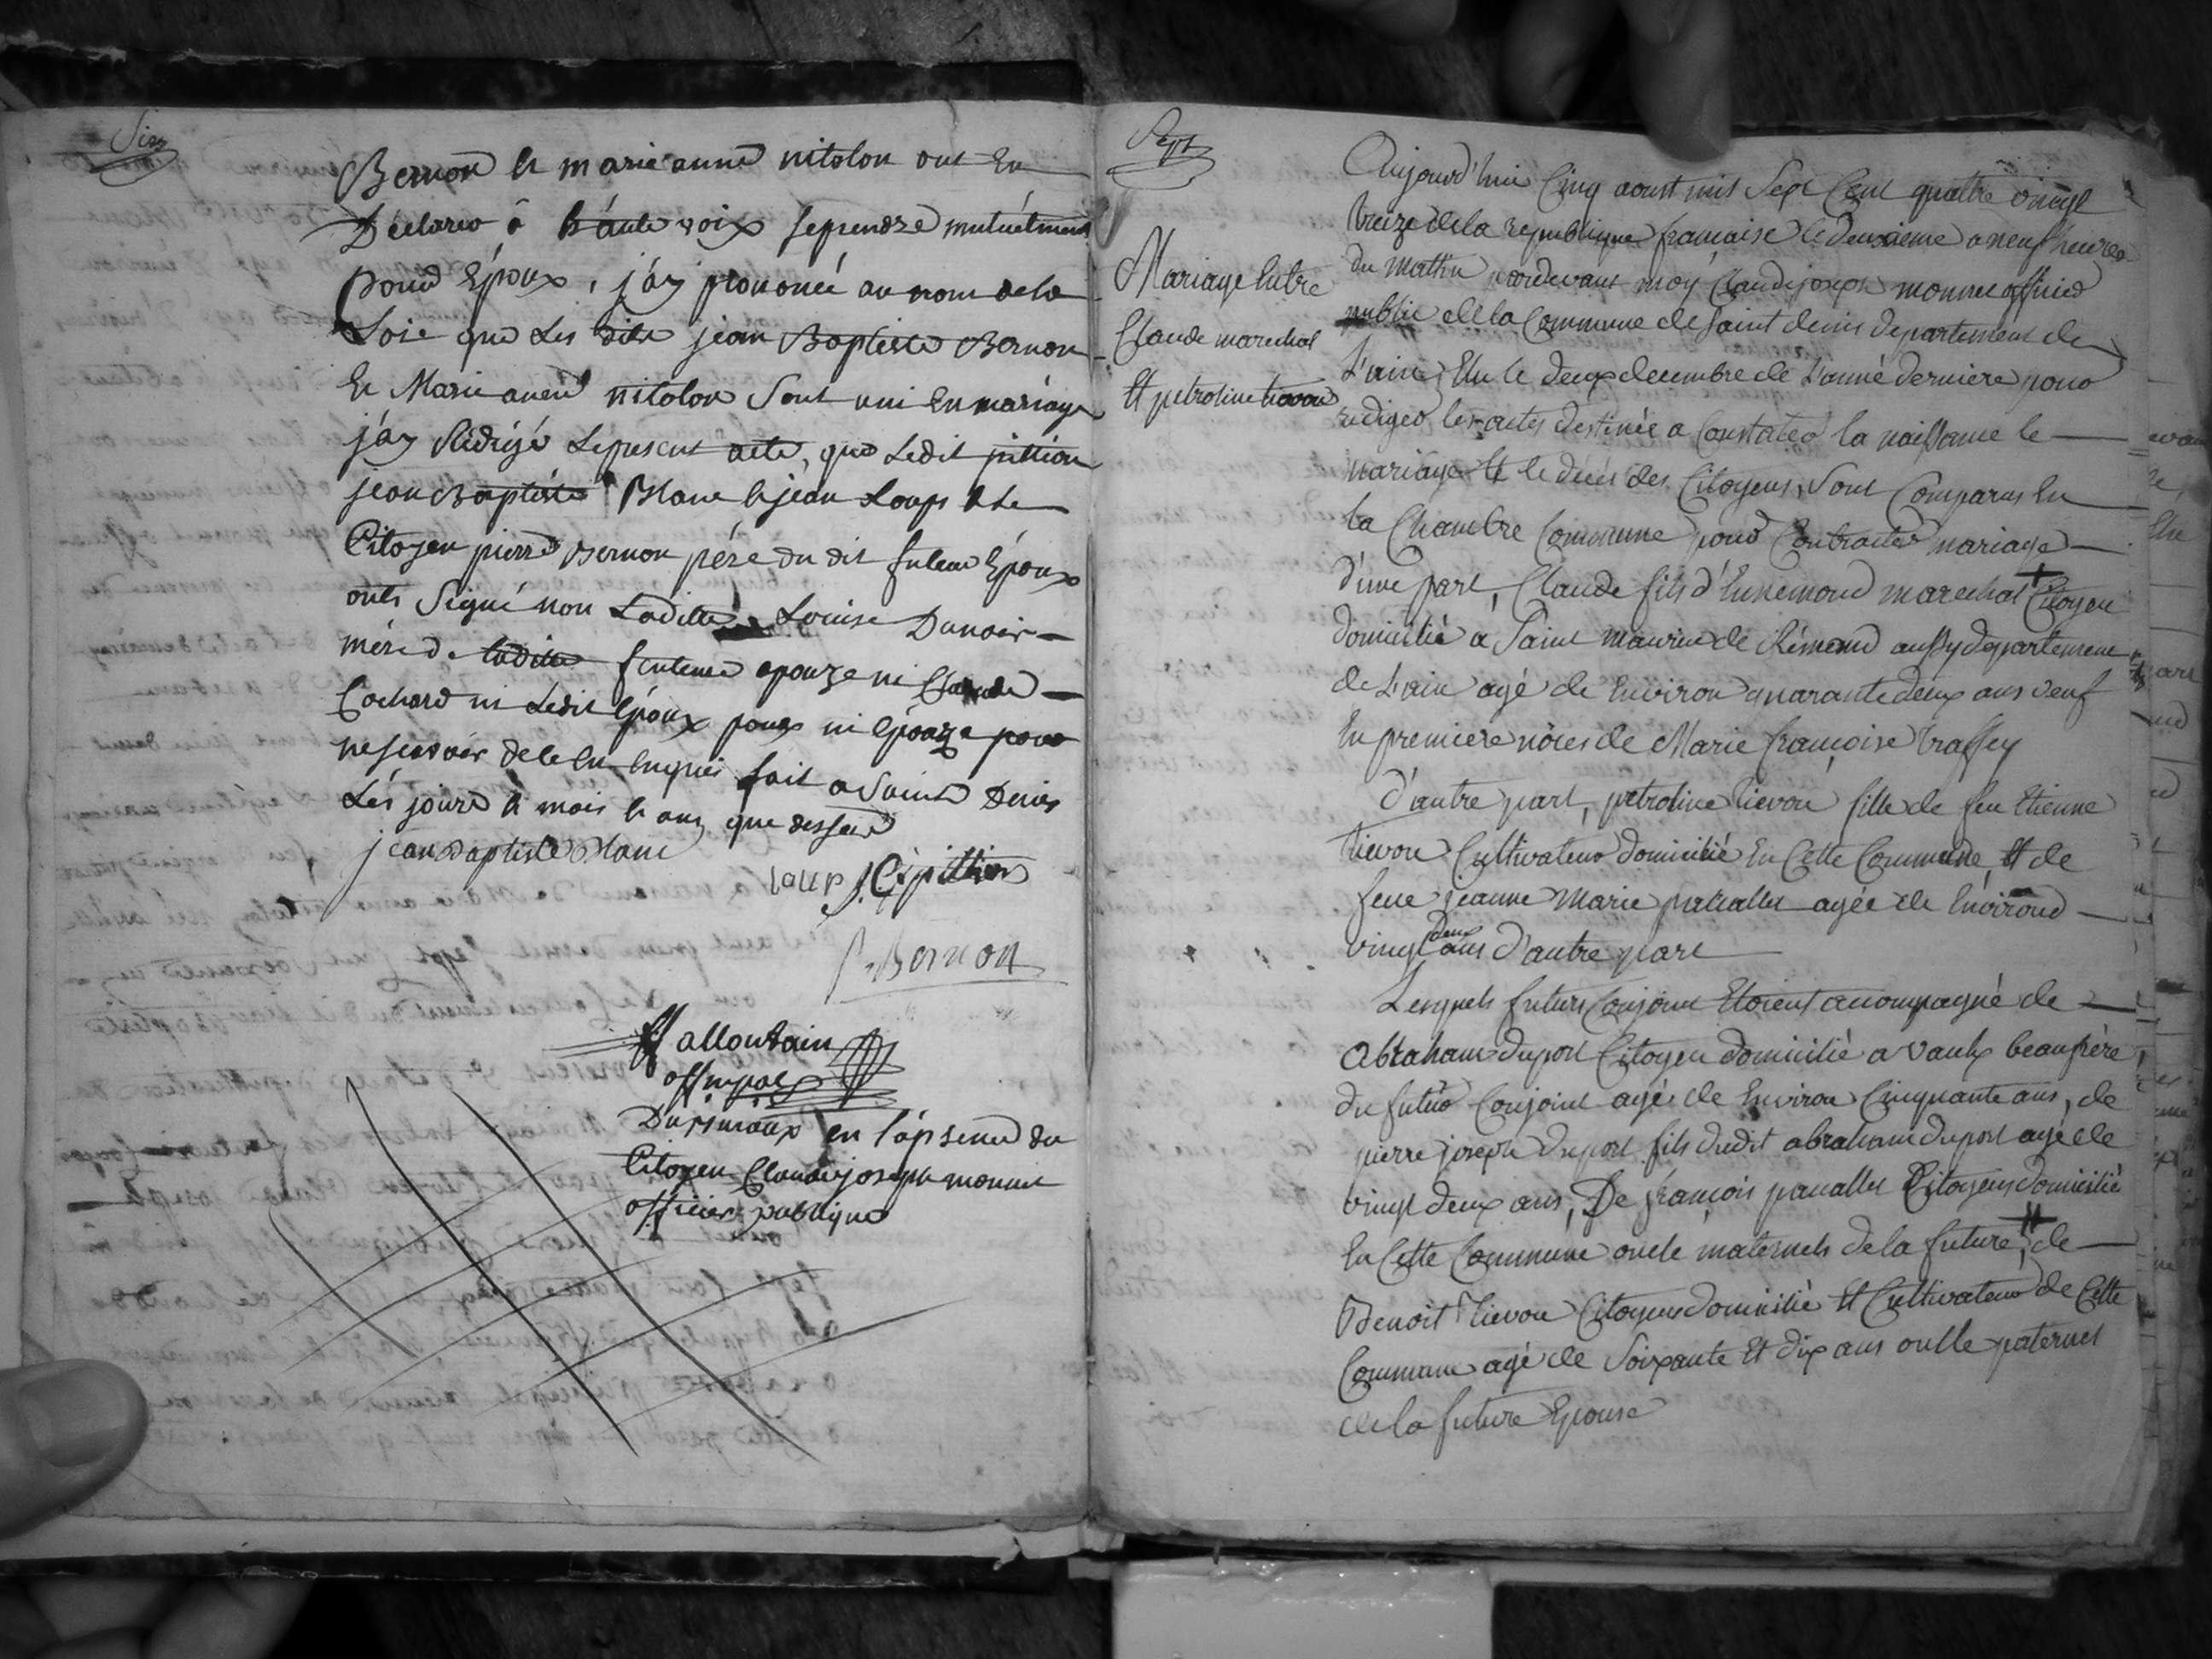 Six
Bernon et marie anne nitolon ont En
Déclarer â háute voix seprendre mutuélment
Pour Époux, j'áy prononcé au nom de la
Loie que Les dits jean Baptiste Bernon
Et Marie anne nitolon Sont uni En mariage
j'áy Rédigé Le present acte, que Ledit pittion
jean Baptiste Blanc et jean Loups et Le
Citoyen pierre Bernon pére du dit futeur Époux
onts Signé non Laditte Louise Dunoir
mére de laditte futeure epouze ni Claude
Cochard ni Ledit Époux poux ni Épouze pour
ne scavoir de ce En Enquis fait a Saint Denis
Lés jours et mois et ans que dessus
jean Baptiste Blanc
Loup J. C. pittion
P. Bernon
allontain
off mpal
En l'apsence du
Citoyen Claude joseph monnet
officier publique
Sept
Mariage Entre
Claude marechal
Et petroline tievon
Aujourd'hui Cinq aoust mil Sept Cent quattre vingt
treize de la republique francaise le deuxieme a neuf heures
du mattin pardevant moy Claude joseph monnet officier
public de la Commune de Saint denis departement de
L'ain, Elu le deux decembre de L'anné derniere pour
rediger les actes destinée a Constater la naissance le
mariage Et le décès des Citoyens, Sont Comparus En
la Chambre Commune pour Contracter mariage
d'une part, Claude fils d'Ennemond marechal + Citoyen
domicilié a Saint maurice de Rémend aussy departement
de L'ain agé de Environ quarante deux ans veuf
En premiere nôces de Marie francoise traffey
d'autre part, petroline tievon fille de feu Etienne
tievon Cultivateur domicilié En Cette Commune, Et de
feue jeanne Marie agée de Environd
vingt deux ans d'autre part
Lesquels futurs Conjoint Etoient accompagné de
Abraham duport Citoyen domicilié a Vaulx beaufrère
du futur Conjoint agé de Environ Cinquante ans, de
pierre joseph duport fils dudit abraham duport agé de
vingt deux ans, De francois Citoyens domicilié
En Cette Commune oncle maternels de la future, de
Benoit tievon Citoyens domicilié Et Cultivateur de Cette
Commune agé de Soixante Et dix ans oncle paternel
de la future Epouse